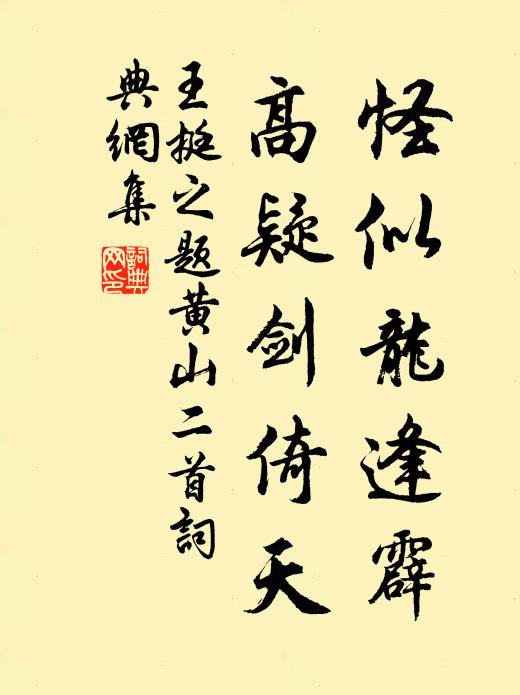 怪似龍逢霹
高疑剑倚天
王挺之题黄山二首詞
典網集
詞典
网印